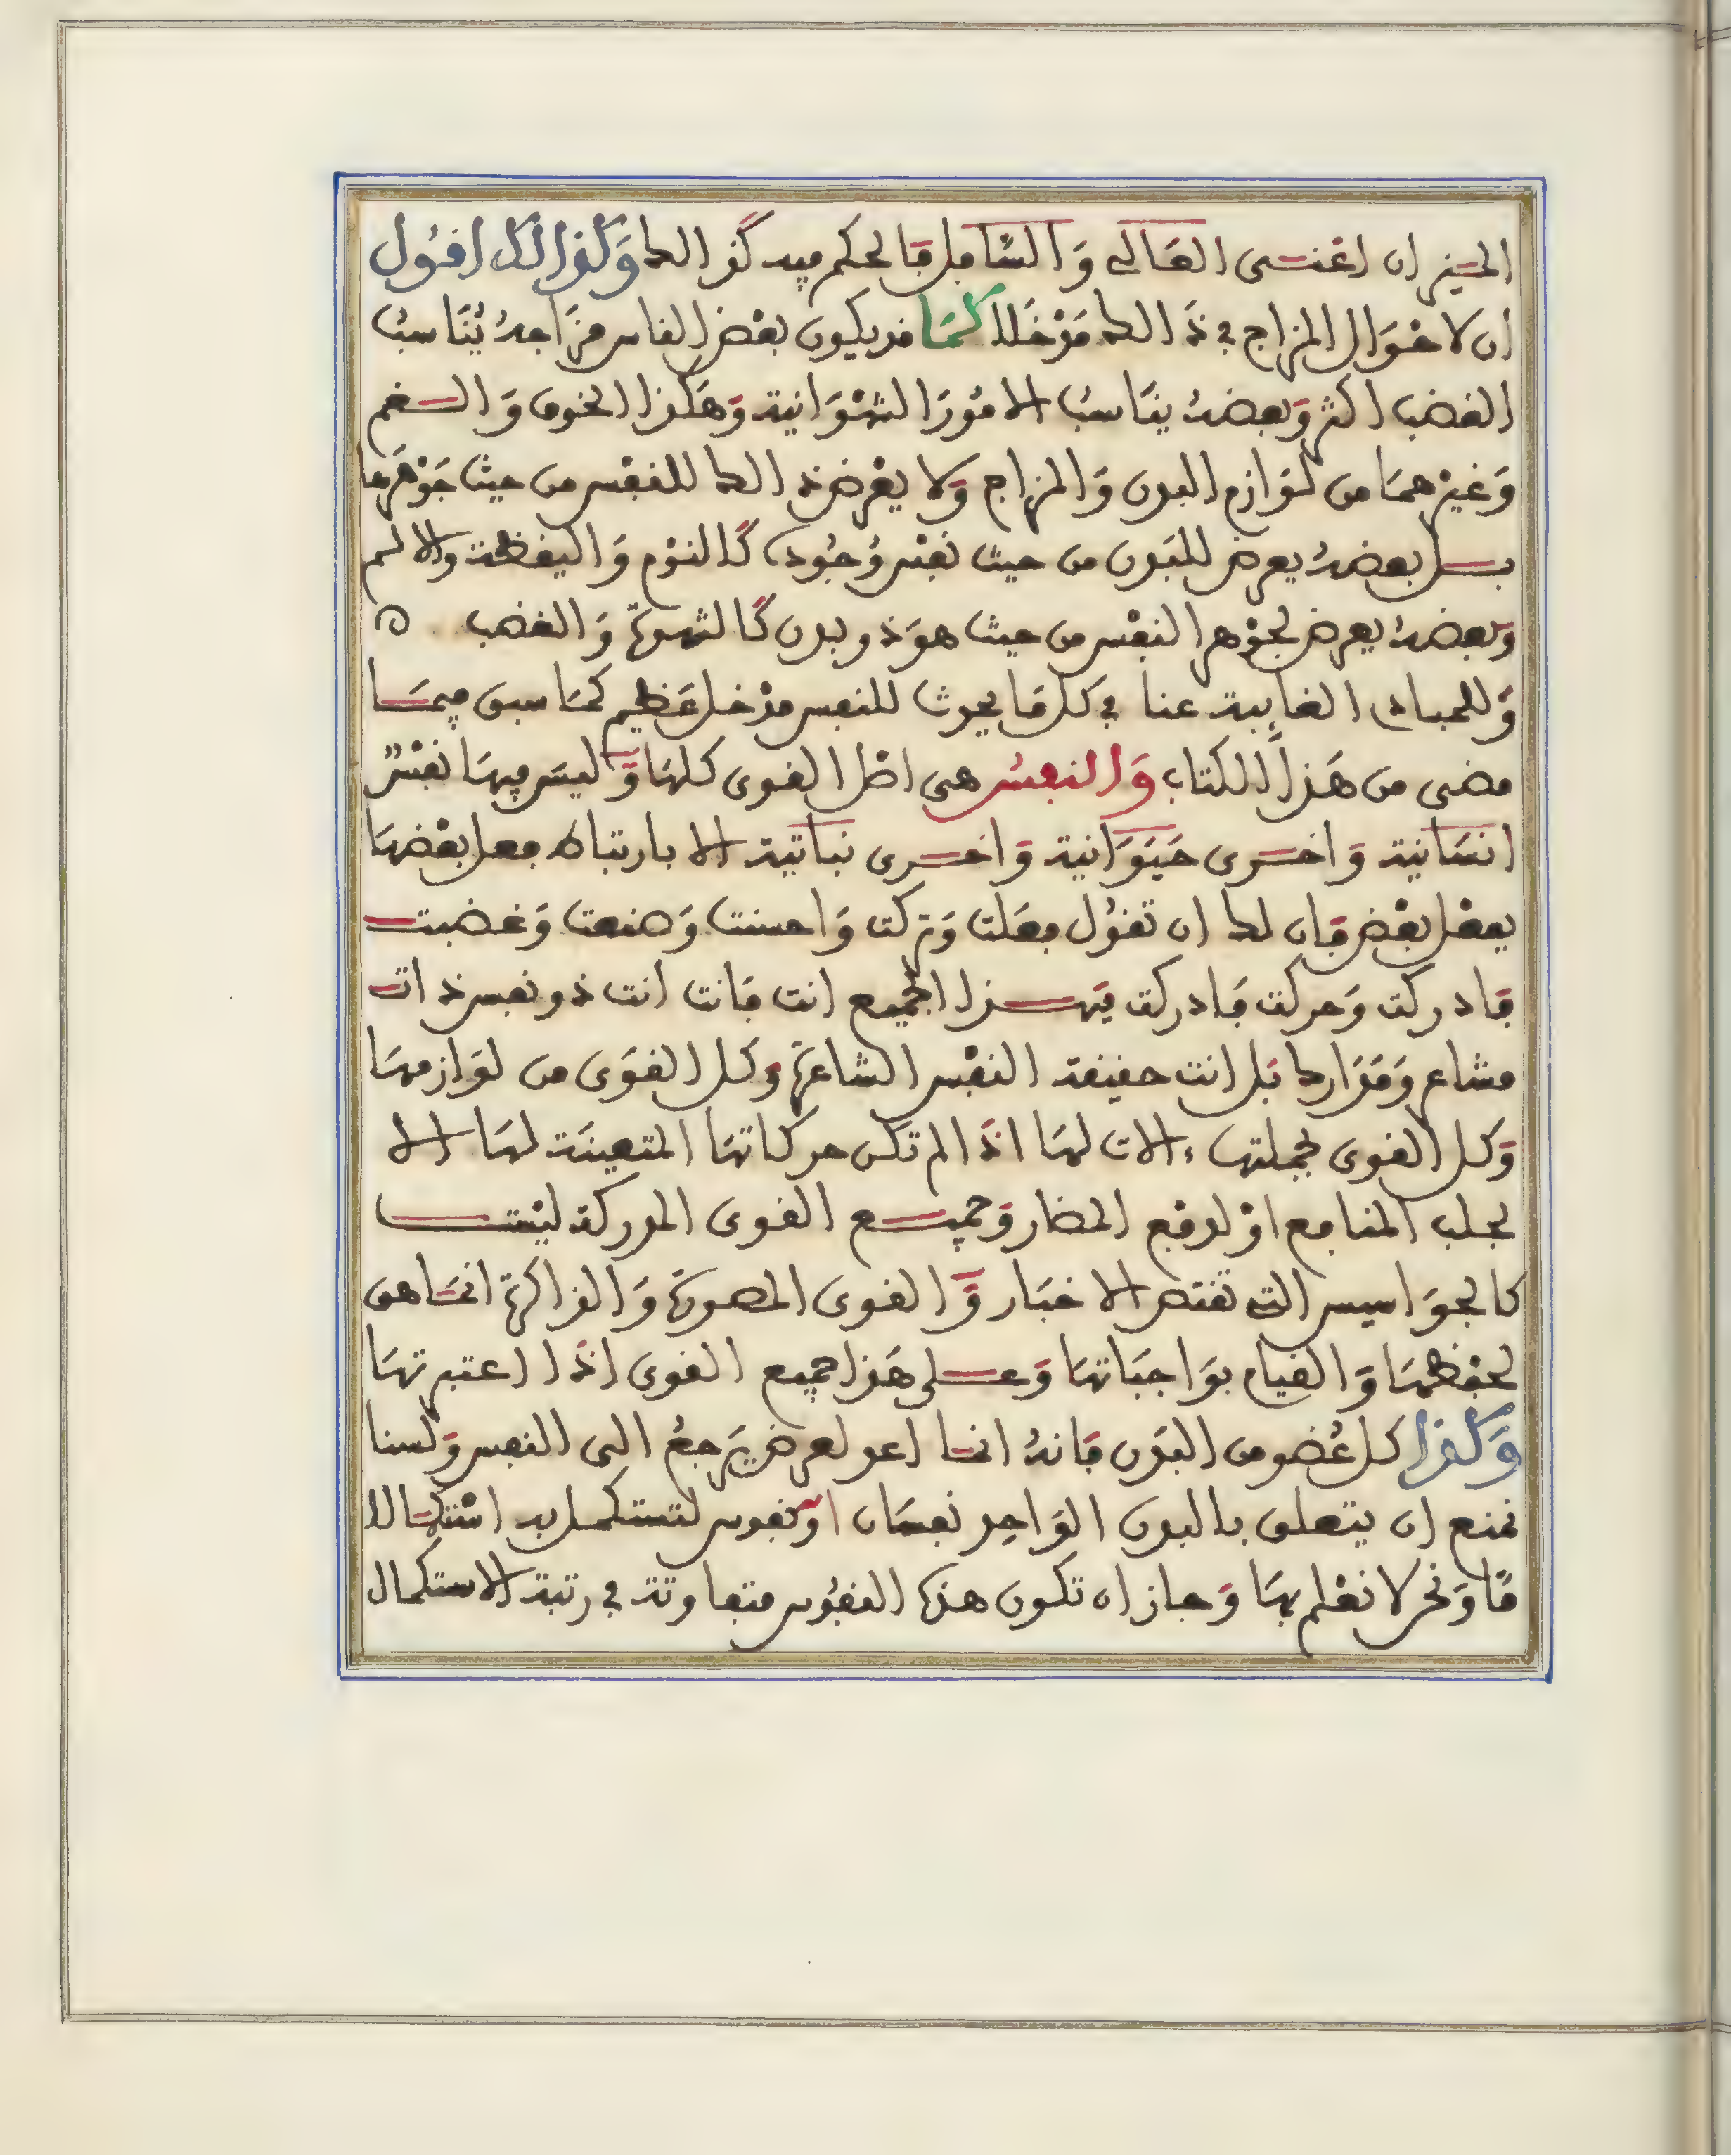 الحيزان اعنى العالي وَالسَّافل فالحكم فيه كذالك وَكذالك اقول
ان لاحْوَال المزاج في ذَالك مَدْخَلا كمَا قد يكون بعْض الناس مزَاجهُ يُنَاسبُ
الغضب اكثر وَبعضهُ ينَاسبُ الامُورَ الشهْوَانية وَهَكذا الخوف وَالسقم
وَغيْرهمَا من لوَازم البدن وَالمزاج وَلا يعْرض ذالك للنفْس من حيث جَوْهَرها
بل بعضهُ يعرض للبَدن من حيث نفْس وُجُوده كَالنوْم وَاليقظة والالم
وَبعضهُ يعرض لجوْهر النفْس من حيث هوَ ذو بدن كَالشهوَة وَالغضب
وَللمبادى الغايبة عنا في كل مَا يحدث للنفس مدْخل عَظيم كمَا سبق فيمَا
مضى من هَذا الكتاب وَالنفسُ هى اصْل القوى كلهَا وَليسَ فيهَا نفْسٌ
انسَانية وَاخرى حَيَوَانية وَاخرى نباتية الا بارتباط فعل بعْضهَا
بفعْل بعْض فَان لك ان تقوُل فعَلت وَتركت وَاحسنت وَصنعت وَغضبت
فَادركت وَحركت فَادركت فَهذا الجميع انت فَانت انت ذو نفس ذات
مشاعر وَمَدَارك بَل انت حقيقة النفْس الشاعرَة وَكل القوَى من لوَازمهَا
وَكل القوى بجملتها ءالات لهَا اذَا لم تكن حركاتهَا المتعينَة لهَا الا
لجلب المنافع اوْ لدفع المضار وَجميع القوى المدركة ليْست
كالجوَاسيس التى تقتص الاخبَار وَالقوى المصورَة وَالذاكرَة انمَا هى
لحفْظهمَا وَالقيام بوَاجبَاتهَا وَعلى هَذا جميع القوى اذَا اعتبرتهَا
وَكذا كل عُضو من البدَن فَانهُ انمَا اعد لعرض يَرجعُ الى النفس وَلسنا
نمنع ان يتعلق بالبدن الوَاحِد نفسَان اوْ نفوس لتستكمل به اسْتكمَالا
مَا وَنحْن لا نعْلم بهَا وَجاز ان تكون هذه النفوُس متفاوتة في رتبة الاستكمال